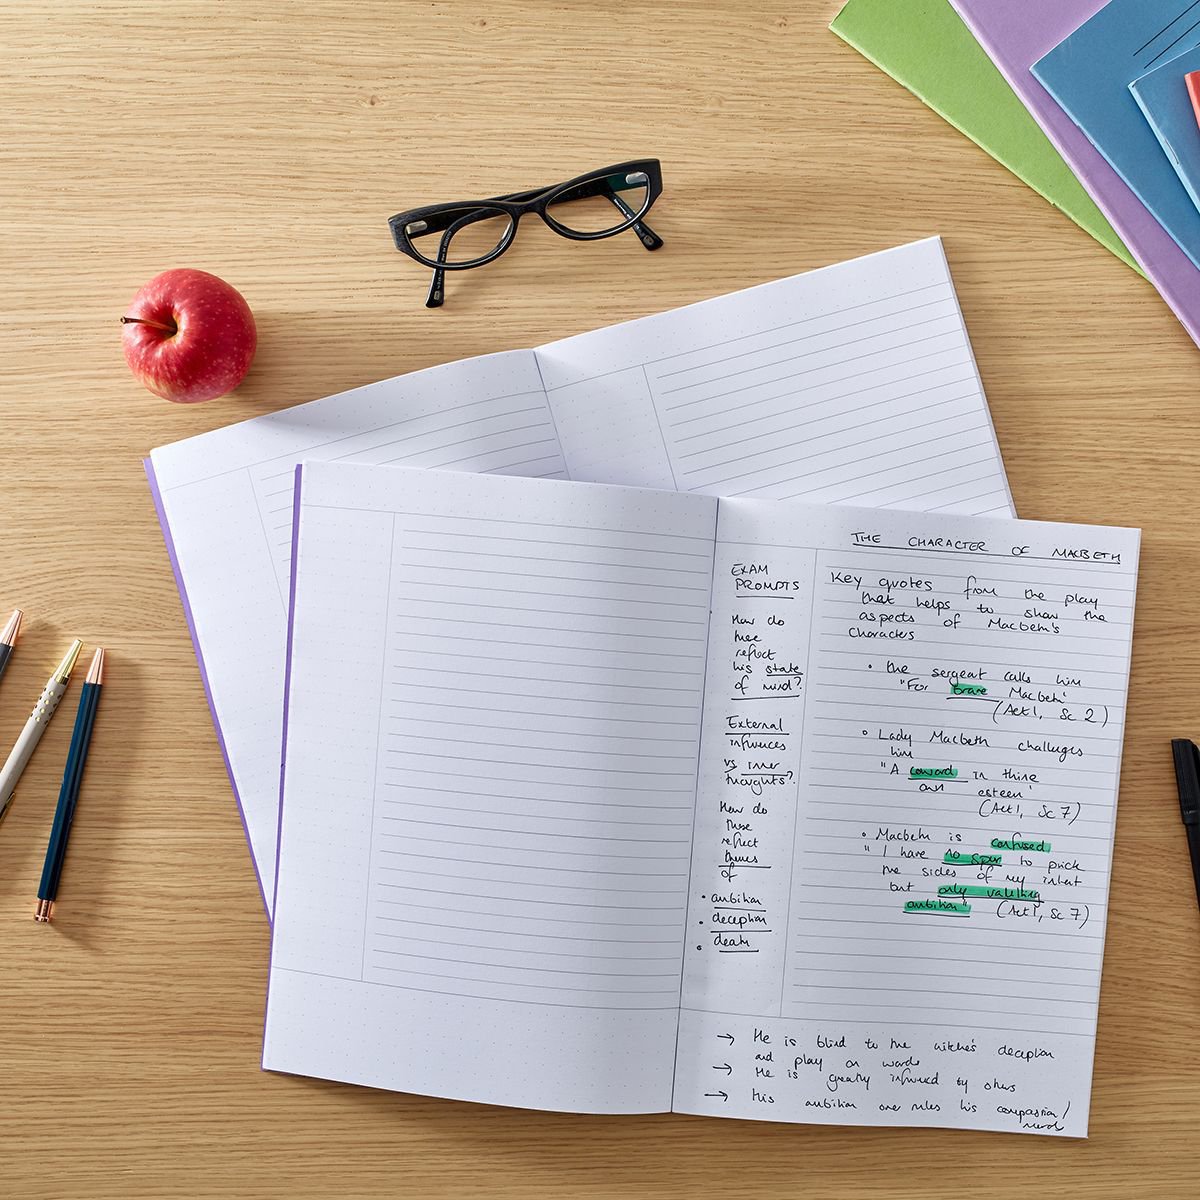 THE CHARACTER OF MACBETH
EXAM
PROMPTS
How do
these
reflect
his state
of mind?
External
influences
vs inner
thoughts?
How do
these
reflect
themes
of
• ambition
• deception
• death
Key quotes from the play
that helps to show the
aspects of Macbeth's
characters
• the sergeant calls him
"For brave Macbeth"
(Act 1, Sc 2)
• Lady Macbeth challenges
him
"A coward in thine
own esteem"
(Act 1, Sc 7)
• Macbeth is confused
"I have no spur to prick
the sides of my intent
but only vaulting
ambition" (Act 1, Sc 7)
→ He is blind to the witche's deception
and play on words
→ He is greatly influenced by others
→ His ambition over rules his compassion/